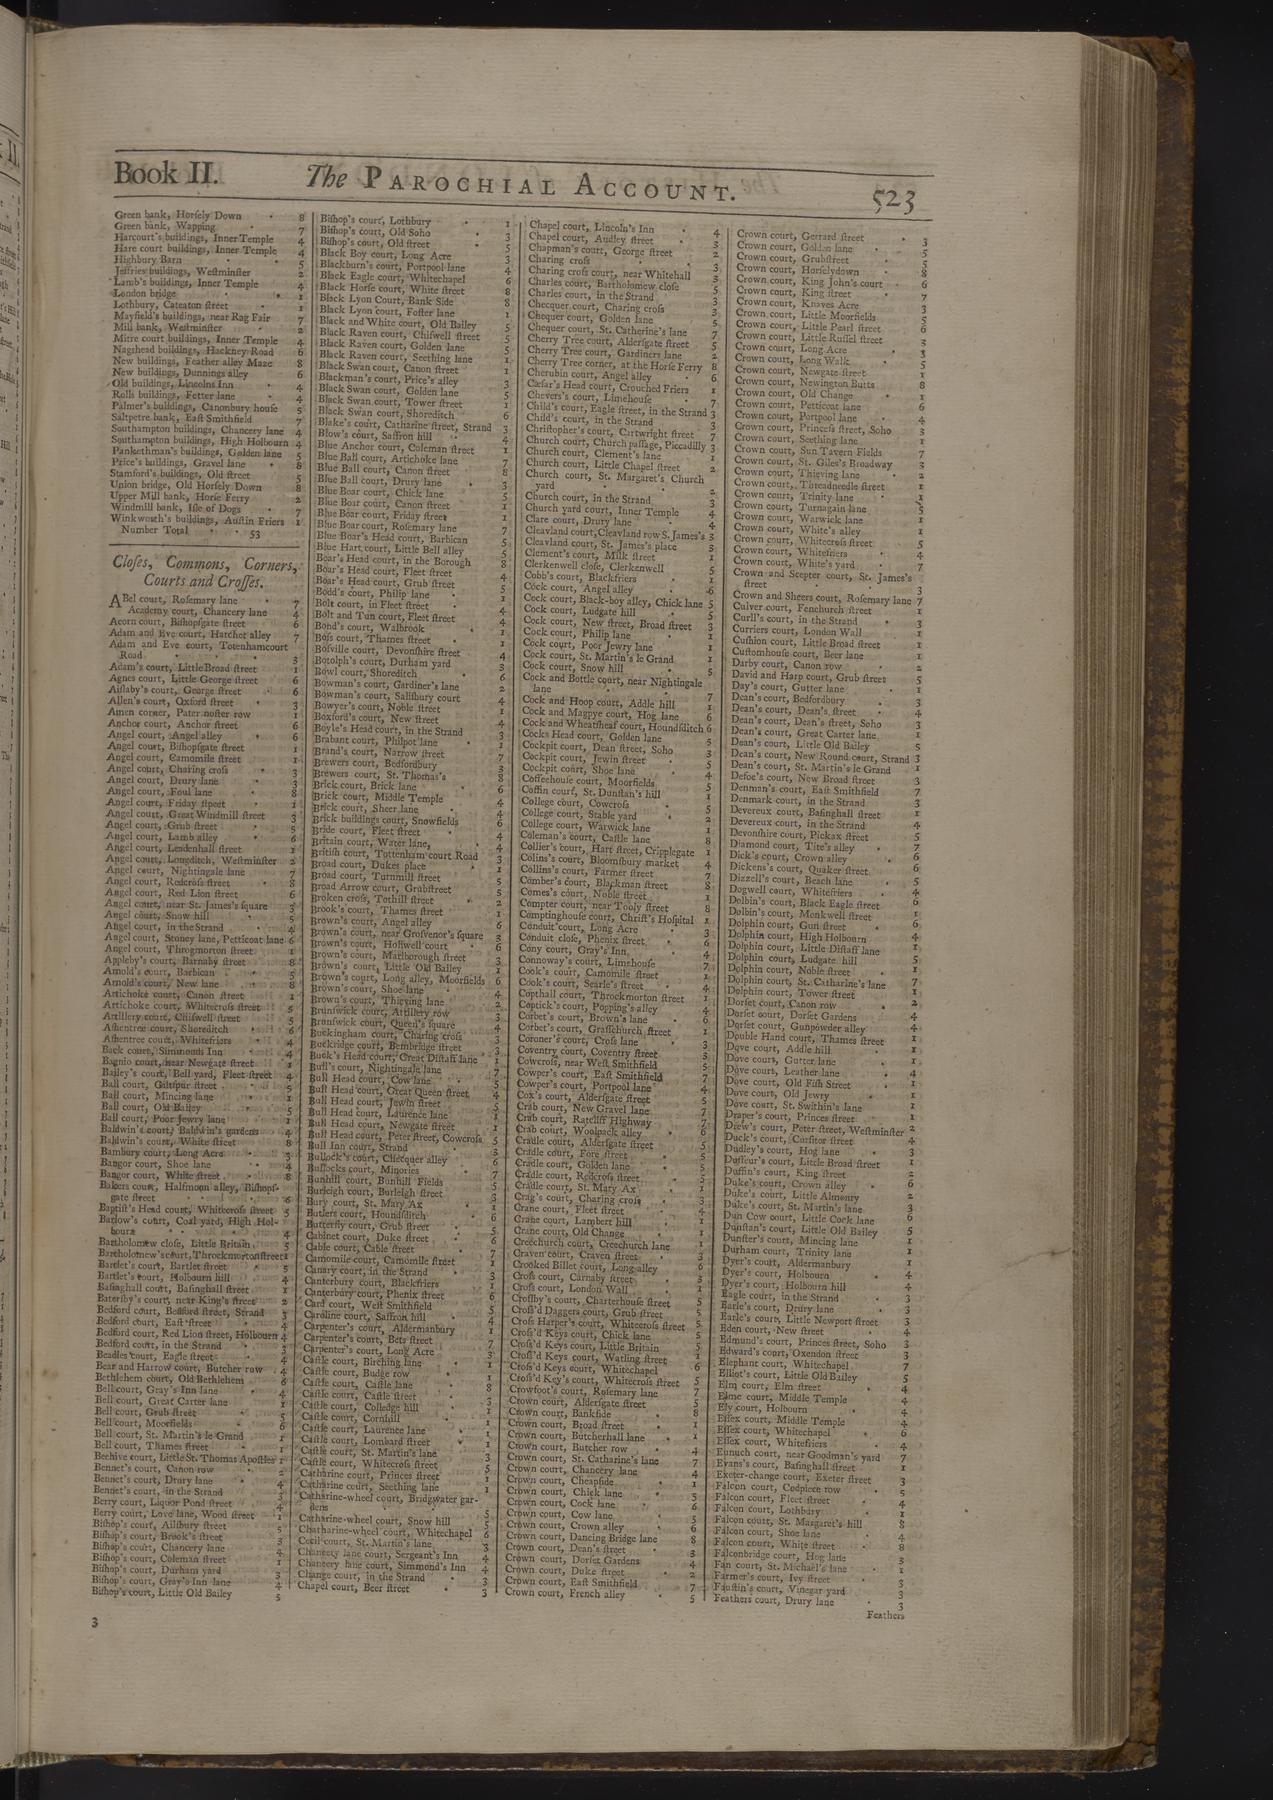 Book II.
The PAROCHIAL ACCOUNT.
523
Green bank, Horſely Down 8
Green bank, Wapping 7
Harcourt's buildings, Inner Temple 4
Hare court buildings, Inner Temple 4
Highbury Barn 5
Jeffries buildings, Weſtminſter 2
Lamb's buildings, Inner Temple 4
London bridge 1
Lothbury, Cateaton ſtreet 1
Mayfield's buildings, near Rag Fair 7
Mill bank, Weſtminſter 2
Mitre court buildings, Inner Temple 4
Nagshead buildings, Hackney Road 6
New buildings, Feather alley Maze 8
New buildings, Dunnings alley 6
Old buildings, Lincolns Inn 4
Rolls buildings, Fetter lane 4
Palmer's buildings, Canonbury houſe 5
Saltpetre bank, Eaſt Smithfield 7
Southampton buildings, Chancery lane 4
Southampton buildings, High Holbourn 4
Pankethman's buildings, Golden lane 5
Price's buildings, Gravel lane 8
Stamford's buildings, Old ſtreet 5
Union bridge, Old Horſely Down 8
Upper Mill bank, Horſe Ferry 2
Windmill bank, Iſle of Dogs 7
Winkworth's buildings, Auſtin Friers 1
Number Total 53
Cloſes, Commons, Corners,
Courts and Croſſes.
ABel court, Roſemary lane 7
Academy court, Chancery lane 4
Acorn court, Biſhopſgate ſtreet 6
Adam and Eve court, Hatchet alley 7
Adam and Eve court, Totenhamcourt
Road 3
Adam's court, Little Broad ſtreet 1
Agnes court, Little George ſtreet 6
Aiſlaby's court, George ſtreet 6
Allen's court, Oxford ſtreet 3
Amen corner, Pater noſter row 1
Anchor court, Anchor ſtreet 6
Angel court, Angel alley 6
Angel court, Biſhopſgate ſtreet 1
Angel court, Camomile ſtreet 1
Angel court, Charing croſs 3
Angel court, Drury lane 3
Angel court, Foul lane 8
Angel court, Friday ſtreet 1
Angel court, Great Windmill ſtreet 3
Angel court, Grub ſtreet 5
Angel court, Lamb alley 6
Angel court, Leadenhall ſtreet 1
Angel court, Longditch, Weſtminſter 2
Angel court, Nightingale lane 7
Angel court, Redcroſs ſtreet 8
Angel court, Red Lion ſtreet 6
Angel court, near St. James's ſquare 3
Angel court, Snow hill 5
Angel court, in the Strand 4
Angel court, Stoney lane, Petticoat lane 6
Angel court, Throgmorton ſtreet 1
Appleby's court, Barnaby ſtreet 8
Arnold's court, Barbican 5
Arnold's court, New lane 8
Artichoke court, Canon ſtreet 1
Artichoke court, Whitecroſs ſtreet 5
Artillery court, Chiſwell ſtreet 5
Aſhentree court, Shoreditch 6
Aſhentree court, Whitefriars 4
Back court, Simmonds Inn 4
Bagnio court, near Newgate ſtreet 1
Bailey's court, Bell yard, Fleet ſtreet 4
Ball court, Giltſpur ſtreet 5
Ball court, Mincing lane 1
Ball court, Old Bailey 5
Ball court, Poor Jewry lane 1
Baldwin's court, Baldwin's gardens 4
Baldwin's court, White ſtreet 8
Bambury court, Long Acre 3
Bangor court, Shoe lane 4
Bangor court, White ſtreet 8
Bakers court, Halfmoon alley, Biſhopſ-
gate ſtreet 6
Baptiſt's Head court, Whitecroſs ſtreet 5
Barlow's court, Coal yard, High Hol-
bourn 4
Bartholomew cloſe, Little Britain 5
Bartholomew's court, Throckmorton ſtreet 1
Bartlet's court, Bartlet ſtreet 5
Bartlet's court, Holbourn hill 4
Baſinghall court, Baſinghall ſtreet 1
Baterſby's court, near King's ſtreet 2
Bedford court, Bedford ſtreet, Strand 3
Bedford court, Eaſt ſtreet 4
Bedford court, Red Lion ſtreet, Holbourn 4
Bedford court, in the Strand 3
Beadles court, Eagle ſtreet 4
Bear and Harrow court, Butcher row 4
Bethlehem court, Old Bethlehem 6
Bell court, Gray's Inn lane 4
Bell court, Great Carter lane 1
Bell court, Grub ſtreet 5
Bell court, Moorfields 6
Bell court, St. Martin's le Grand 1
Bell court, Thames ſtreet 1
Beehive court, Little St. Thomas Apoſtles 1
Bennet's court, Canon row 2
Bennet's court, Drury lane 4
Bennet's court, in the Strand 3
Berry court, Liquor Pond ſtreet 4
Berry court, Love lane, Wood ſtreet 1
Biſhop's court, Ailſbury ſtreet 5
Biſhop's court, Brook's ſtreet 3
Biſhop's court, Chancery lane 4
Biſhop's court, Coleman ſtreet 1
Biſhop's court, Durham yard 3
Biſhop's court, Gray's Inn lane 4
Biſhop's court, Little Old Bailey 5
3
Biſhop's court, Lothbury 1
Biſhop's court, Old Soho 3
Biſhop's court, Old ſtreet 5
Black Boy court, Long Acre 3
Blackburn's court, Portpool lane 4
Black Eagle court, Whitechapel 6
Black Horſe court, White ſtreet 8
Black Lyon Court, Bank Side 8
Black Lyon court, Foſter lane 1
Black and White court, Old Bailey 5
Black Raven court, Chiſwell ſtreet 5
Black Raven court, Golden lane 5
Black Raven court, Seething lane 1
Black Swan court, Canon ſtreet 1
Blackman's court, Price's alley 3
Black Swan court, Golden lane 5
Black Swan court, Tower ſtreet 1
Black Swan court, Shoreditch 6
Blake's court, Catharine ſtreet, Strand 3
Blow's court, Saffron hill 4
Blue Anchor court, Coleman ſtreet 1
Blue Ball court, Artichoke lane 7
Blue Ball court, Canon ſtreet 8
Blue Ball court, Drury lane 3
Blue Boar court, Chick lane 5
Blue Boar court, Canon ſtreet 1
Blue Boar court, Friday ſtreet 1
Blue Boar court, Roſemary lane 7
Blue Boar's Head court, Barbican 5
Blue Hart court, Little Bell alley 5
Boar's Head court, in the Borough 8
Boar's Head court, Fleet ſtreet 4
Boar's Head court, Grub ſtreet 5
Bodd's court, Philip lane 1
Bolt court, in Fleet ſtreet 4
Bolt and Tun court, Fleet ſtreet 4
Bond's court, Walbrook 1
Boſs court, Thames ſtreet 1
Boſville court, Devonſhire ſtreet 4
Botolph's court, Durham yard 3
Bowl court, Shoreditch 6
Bowman's court, Gardiner's lane 2
Bowman's court, Saliſbury court 4
Bowyer's court, Noble ſtreet 1
Boxford's court, New ſtreet 4
Boyle's Head court, in the Strand 3
Brabant court, Philpot lane 1
Brand's court, Narrow ſtreet 7
Brewers court, Bedfordbury 3
Brewers court, St. Thomas's 8
Brick court, Brick lane 6
Brick court, Middle Temple 4
Brick court, Sheer lane 4
Brick buildings court, Snowfields 6
Bride court, Fleet ſtreet 4
Britain court, Water lane, 4
Britiſh court, Tottenham court Road 3
Broad court, Dukes place 1
Broad court, Turnmill ſtreet 5
Broad Arrow court, Grubſtreet 5
Broken croſs, Tothill ſtreet 2
Brook's court, Thames ſtreet 1
Brown's court, Angel alley 6
Brown's court, near Groſvenor's ſquare 3
Brown's court, Holiwell court 6
Brown's court, Marlborough ſtreet 3
Brown's court, Little Old Bailey 1
Brown's court, Long alley, Moorfields 6
Brown's court, Shoe lane 4
Brown's court, Thieving lane 2
Brunſwick court, Artillery row 3
Brunſwick court, Queen's ſquare 4
Buckingham court, Charing croſs 3
Buckridge court, Bembridge ſtreet 3
Buck's Head court, Great Diſtaff lane 1
Bull's court, Nightingale lane 7
Bull Head court, Cow lane 5
Bull Head court, Great Queen ſtreet 4
Bull Head court, Jewin ſtreet 5
Bull Head court, Laurence lane 1
Bull Head court, Newgate ſtreet 1
Bull Head court, Peter ſtreet, Cowcroſs 5
Bull Inn court, Strand 3
Bullock's court, Checquer alley 6
Bullocks court, Minories 7
Bunhill court, Bunhill Fields 5
Burleigh court, Burleigh ſtreet 3
Bury court, St. Mary Ax 1
Butlers court, Houndſditch 6
Butterfly court, Grub ſtreet 5
Cabinet court, Duke ſtreet 6
Cable court, Cable ſtreet 7
Camomile court, Camomile ſtreet 1
Canary court, in the Strand 3
Canterbury court, Blackfriers 1
Canterbury court, Phenix ſtreet 6
Card court, Weſt Smithfield 5
Caroline court, Saffron hill 4
Carpenter's court, Aldermanbury 1
Carpenter's court, Bets ſtreet 7
Carpenter's court, Long Acre 3
Caſtle court, Birching lane 1
Caſtle court, Budge row 1
Caſtle court, Caſtle lane 8
Caſtle court, Caſtle ſtreet 3
Caſtle court, Colledge hill 1
Caſtle court, Cornhill 1
Caſtle court, Laurence lane 1
Caſtle court, Lombard ſtreet 1
Caſtle court, St. Martin's lane 3
Caſtle court, Whitecroſs ſtreet 5
Catharine court, Princes ſtreet 1
Catharine court, Seething lane 1
Catharine-wheel court, Bridgwater gar-
dens 5
Catharine-wheel court, Snow hill 5
Chatharine-wheel court, Whitechapel 6
Cecil court, St. Martin's lane 3
Chancery lane court, Sergeant's Inn 4
Chancery lane court, Simmond's Inn 4
Change court, in the Strand 3
Chapel court, Beer ſtreet 3
Chapel court, Lincoln's Inn 4
Chapel court, Audley ſtreet 3
Chapman's court, George ſtreet 2
Charing croſs 3
Charing croſs court, near Whitehall 3
Charles court, Bartholomew cloſe 5
Charles court, in the Strand 3
Checquer court, Charing croſs 3
Chequer court, Golden lane 5
Chequer court, St. Catherine's lane 7
Cherry Tree court, Alderſgate ſtreet 5
Cherry Tree court, Gardiners lane 2
Cherry Tree corner, at the Horſe Ferry 8
Cherubin court, Angel alley 6
Cæſar's Head court, Crouched Friers 1
Chevers's court, Limehouſe 7
Child's court, Eagle ſtreet, in the Strand 3
Child's court, in the Strand 3
Chriſtopher's court, Cartwright ſtreet 7
Church court, Church paſſage, Piccadilly 3
Church court, Clement's lane 1
Church court, Little Chapel ſtreet 2
Church court, St. Margaret's Church
yard 2
Church court, in the Strand 3
Church yard court, Inner Temple 4
Clare court, Drury lane 4
Cleavland court, Cleavland row S. James's 3
Cleavland court, St. James's place 3
Clement's court, Milk ſtreet 1
Clerkenwell cloſe, Clerkenwell 5
Cobb's court, Blackfriers 1
Cock court, Angel alley 6
Cock court, Black-boy alley, Chick lane 5
Cock court, Ludgate hill 5
Cock court, New ſtreet, Broad ſtreet 3
Cock court, Philip lane 1
Cock court, Poor Jewry lane 1
Cock court, St. Martin's le Grand 1
Cock court, Snow hill 5
Cock and Bottle court, near Nightingale
lane 7
Cock and Hoop court, Addle hill 1
Cock and Magpye court, Hog lane 6
Cock and Wheatſheaf court, Houndſditch 6
Cocks Head court, Golden lane 5
Cockpit court, Dean ſtreet, Soho 3
Cockpit court, Jewin ſtreet 5
Cockpit court, Shoe lane 4
Coffeehouſe court, Moorfields 5
Coffin court, St. Dunſtan's hill 1
College court, Cowcroſs 5
College court, Stable yard 2
College court, Warwick lane 1
Coleman's court, Caſtle lane 8
Collier's court, Hart ſtreet, Cripplegate 1
Colins's court, Bloomſbury market 4
Collins's court, Farmer ſtreet 7
Comber's court, Blackman ſtreet 8
Comes's court, Noble ſtreet 1
Compter court, near Tooly ſtreet 8
Comptinghouſe court, Chriſt's Hoſpital 1
Conduit court, Long Acre 3
Conduit cloſe, Phenix ſtreet 6
Cony court, Gray's Inn 4
Connoway's court, Limehouſe 7
Cook's court, Camomile ſtreet 1
Cook's court, Searle's ſtreet 4
Copthall court, Throckmorton ſtreet 1
Coptick's court, Popping's alley 4
Corbet's court, Brown's lane 6
Corbet's court, Graſſchurch ſtreet 1
Coroner's court, Croſs lane 3
Coventry court, Coventry ſtreet 3
Cowcroſs, near Weſt Smithfield 5
Cowper's court, Eaſt Smithfield 7
Cowper's court, Portpool lane 4
Cox's court, Alderſgate ſtreet 5
Crab court, New Gravel lane 7
Crab court, Ratcliff Highway 7
Crab court, Woolpack alley 6
Cradle court, Alderſgate ſtreet 5
Cradle court, Fore ſtreet 5
Cradle court, Golden lane 5
Cradle court, Redcroſs ſtreet 5
Cradle court, St. Mary Ax 1
Crag's court, Charing croſs 3
Crane court, Fleet ſtreet 4
Crane court, Lambert hill 1
Crane court, Old Change 1
Creechurch court, Creechurch lane 1
Craven court, Craven ſtreet 3
Crooked Billet court, Long alley 6
Croſs court, Carnaby ſtreet 3
Croſs court, London Wall 1
Croſſby's court, Charterhouſe ſtreet 5
Croſs'd Daggers court, Grub ſtreet 5
Croſs Harper's court, Whitecroſs ſtreet 5
Croſs'd Keys court, Chick lane 5
Croſs'd Keys court, Little Britain 5
Croſs'd Keys court, Watling ſtreet 1
Croſs'd Keys court, Whitechapel 6
Croſs'd Key's court, Whitecroſs ſtreet 5
Crowfoot's court, Roſemary lane 7
Crown court, Alderſgate ſtreet 5
Crown court, Bankſide 8
Crown court, Broad ſtreet 1
Crown court, Butcherhall lane 1
Crown court, Butcher row 4
Crown court, St. Catharine's lane 7
Crown court, Chancery lane 4
Crown court, Cheapſide 1
Crown court, Chick lane 5
Crown court, Cock lane 6
Crown court, Cow lane 5
Crown court, Crown alley 6
Crown court, Dancing Bridge lane 8
Crown court, Dean's ſtreet 3
Crown court, Dorſet Gardens 4
Crown court, Duke ſtreet 2
Crown court, Eaſt Smithfield 7
Crown court, French alley 5
Crown court, Gerrard ſtreet 3
Crown court, Golden lane 5
Crown court, Grubſtreet 5
Crown court, Horſelydown 8
Crown court, King John's court 6
Crown court, King ſtreet 7
Crown court, Knaves Acre 3
Crown court, Little Moorfields 5
Crown court, Little Pearl ſtreet 6
Crown court, Little Ruſſel ſtreet 3
Crown court, Long Acre 3
Crown court, Long Walk 5
Crown court, Newgate ſtreet 1
Crown court, Newington Butts 8
Crown court, Old Change 1
Crown court, Petticoat lane 6
Crown court, Portpool lane 4
Crown court, Princeſs ſtreet, Soho 3
Crown court, Seething lane 1
Crown court, Sun Tavern Fields 7
Crown court, St. Giles's Broadway 3
Crown court, Thieving lane 2
Crown court, Threadneedle ſtreet 1
Crown court, Trinity lane 1
Crown court, Turnagain lane 5
Crown court, Warwick lane 1
Crown court, White's alley 1
Crown court, Whitecroſs ſtreet 5
Crown court, Whitefriers 4
Crown court, White's yard 7
Crown and Scepter court, St. James's
ſtreet 3
Crown and Sheers court, Roſemary lane 7
Culver court, Fenchurch ſtreet 1
Curll's court, in the Strand 3
Curriers court, London Wall 1
Cuſhion court, Little Broad ſtreet 1
Cuſtomhouſe court, Beer lane 1
Darby court, Canon row 2
David and Harp court, Grub ſtreet 5
Day's court, Gutter lane 1
Dean's court, Bedfordbury 3
Dean's court, Dean's ſtreet 4
Dean's court, Dean's ſtreet, Soho 3
Dean's court, Great Carter lane 1
Dean's court, Little Old Bailey 5
Dean's court, New Round court, Strand 3
Dean's court, St. Martin's le Grand 1
Defoe's court, New Broad ſtreet 3
Denman's court, Eaſt Smithfield 7
Denmark court, in the Strand 3
Devereux court, Baſinghall ſtreet 1
Devereux court, in the Strand 4
Devonſhire court, Pickax ſtreet 5
Diamond court, Tite's alley 7
Dick's court, Crown alley 6
Dickens's court, Quaker ſtreet 6
Dizzell's court, Beach lane 5
Dogwell court, Whitefriers 4
Dolbin's court, Black Eagle ſtreet 6
Dolbin's court, Monkwell ſtreet 1
Dolphin court, Gun ſtreet 6
Dolphin court, High Holbourn 4
Dolphin court, Little Diſtaff lane 1
Dolphin court, Ludgate hill 5
Dolphin court, Noble ſtreet 1
Dolphin court, St. Catharine's lane 7
Dolphin court, Tower ſtreet 1
Dorſet court, Canon row 2
Dorſet court, Dorſet Gardens 4
Dorſet court, Gunpowder alley 4
Double Hand court, Thames ſtreet 1
Dove court, Addle hill 1
Dove court, Gutter lane 1
Dove court, Leather lane 4
Dove court, Old Fiſh Street 1
Dove court, Old Jewry 1
Dove court, St. Swithin's lane 1
Draper's court, Princes ſtreet 1
Drew's court, Peter ſtreet, Weſtminſter 2
Duck's court, Curſitor ſtreet 4
Dudley's court, Hog lane 3
Duffeur's court, Little Broad ſtreet 1
Duffin's court, King ſtreet 2
Duke's court, Crown alley 6
Duke's court, Little Almonry 2
Duke's court, St. Martin's lane 3
Dun Cow court, Little Cock lane 6
Dunſtan's court, Little Old Bailey 5
Dunſter's court, Mincing lane 1
Durham court, Trinity lane 1
Dyer's court, Aldermanbury 1
Dyer's court, Holbourn 4
Dyer's court, Holbourn hill 4
Eagle court, in the Strand 3
Earle's court, Drury lane 3
Earle's court, Little Newport ſtreet 3
Eden court, New ſtreet 4
Edmund's court, Princes ſtreet, Soho 3
Edward's court, Oxendon ſtreet 3
Elephant court, Whitechapel 7
Elliot's court, Little Old Bailey 5
Elm court, Elm ſtreet 4
Elme court, Middle Temple 4
Ely court, Holbourn 4
Eſſex court, Middle Temple 4
Eſſex court, Whitechapel 6
Eſſex court, Whitefriers 4
Eunuch court, near Goodman's yard 7
Evans's court, Baſinghall ſtreet 1
Exeter-change court, Exeter ſtreet 3
Falcon court, Codpiece row 5
Falcon court, Fleet ſtreet 4
Falcon court, Lothbury 1
Falcon court, St. Margaret's hill 8
Falcon court, Shoe lane 4
Falcon court, White ſtreet 8
Falconbridge court, Hog lane 3
Fan court, St. Michael's lane 1
Farmer's court, Ivy ſtreet 3
Fauſtin's court, Vinegar yard 3
Feathers court, Drury lane 3
Feathers